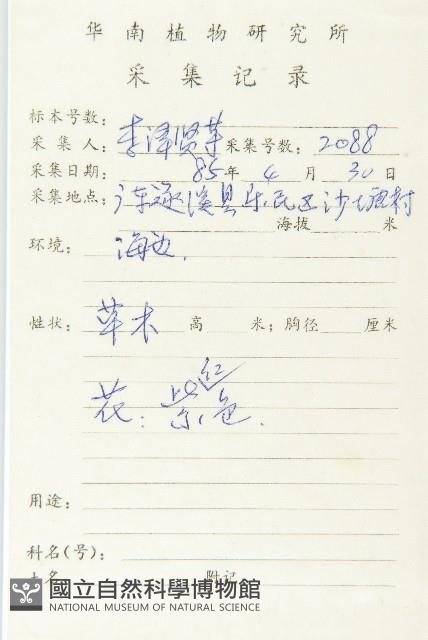 华南植物研究所
采集记录
标本号数:
采集人: 李泽贤等 采集号数: 2088
采集日期: 85年 4月 30日
采集地点: 广东遂溪县乐民区沙土塘村
海拔 米
环境: 海边.
性状: 草本 高 米; 胸径 厘米
红
花: 紫色.
用途:
科名(号):
土名 附记
國立自然科學博物館
NATIONAL MUSEUM OF NATURAL SCIENCE